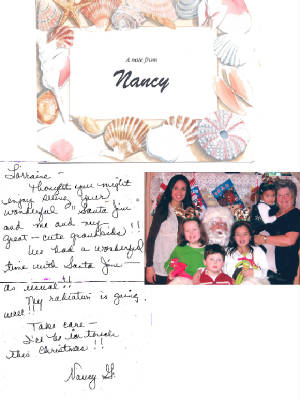 A note from
Nancy
Lorraine -
Thought you might
enjoy seeing your
wonderful "Santa Jim"
and me and my
great - cute grandkids!!
We had a wonderful
time with Santa Jim
as usual!!
My radiation is going
well!!
Take care -
I'll be in touch
this Christmas!!
Nancy H.